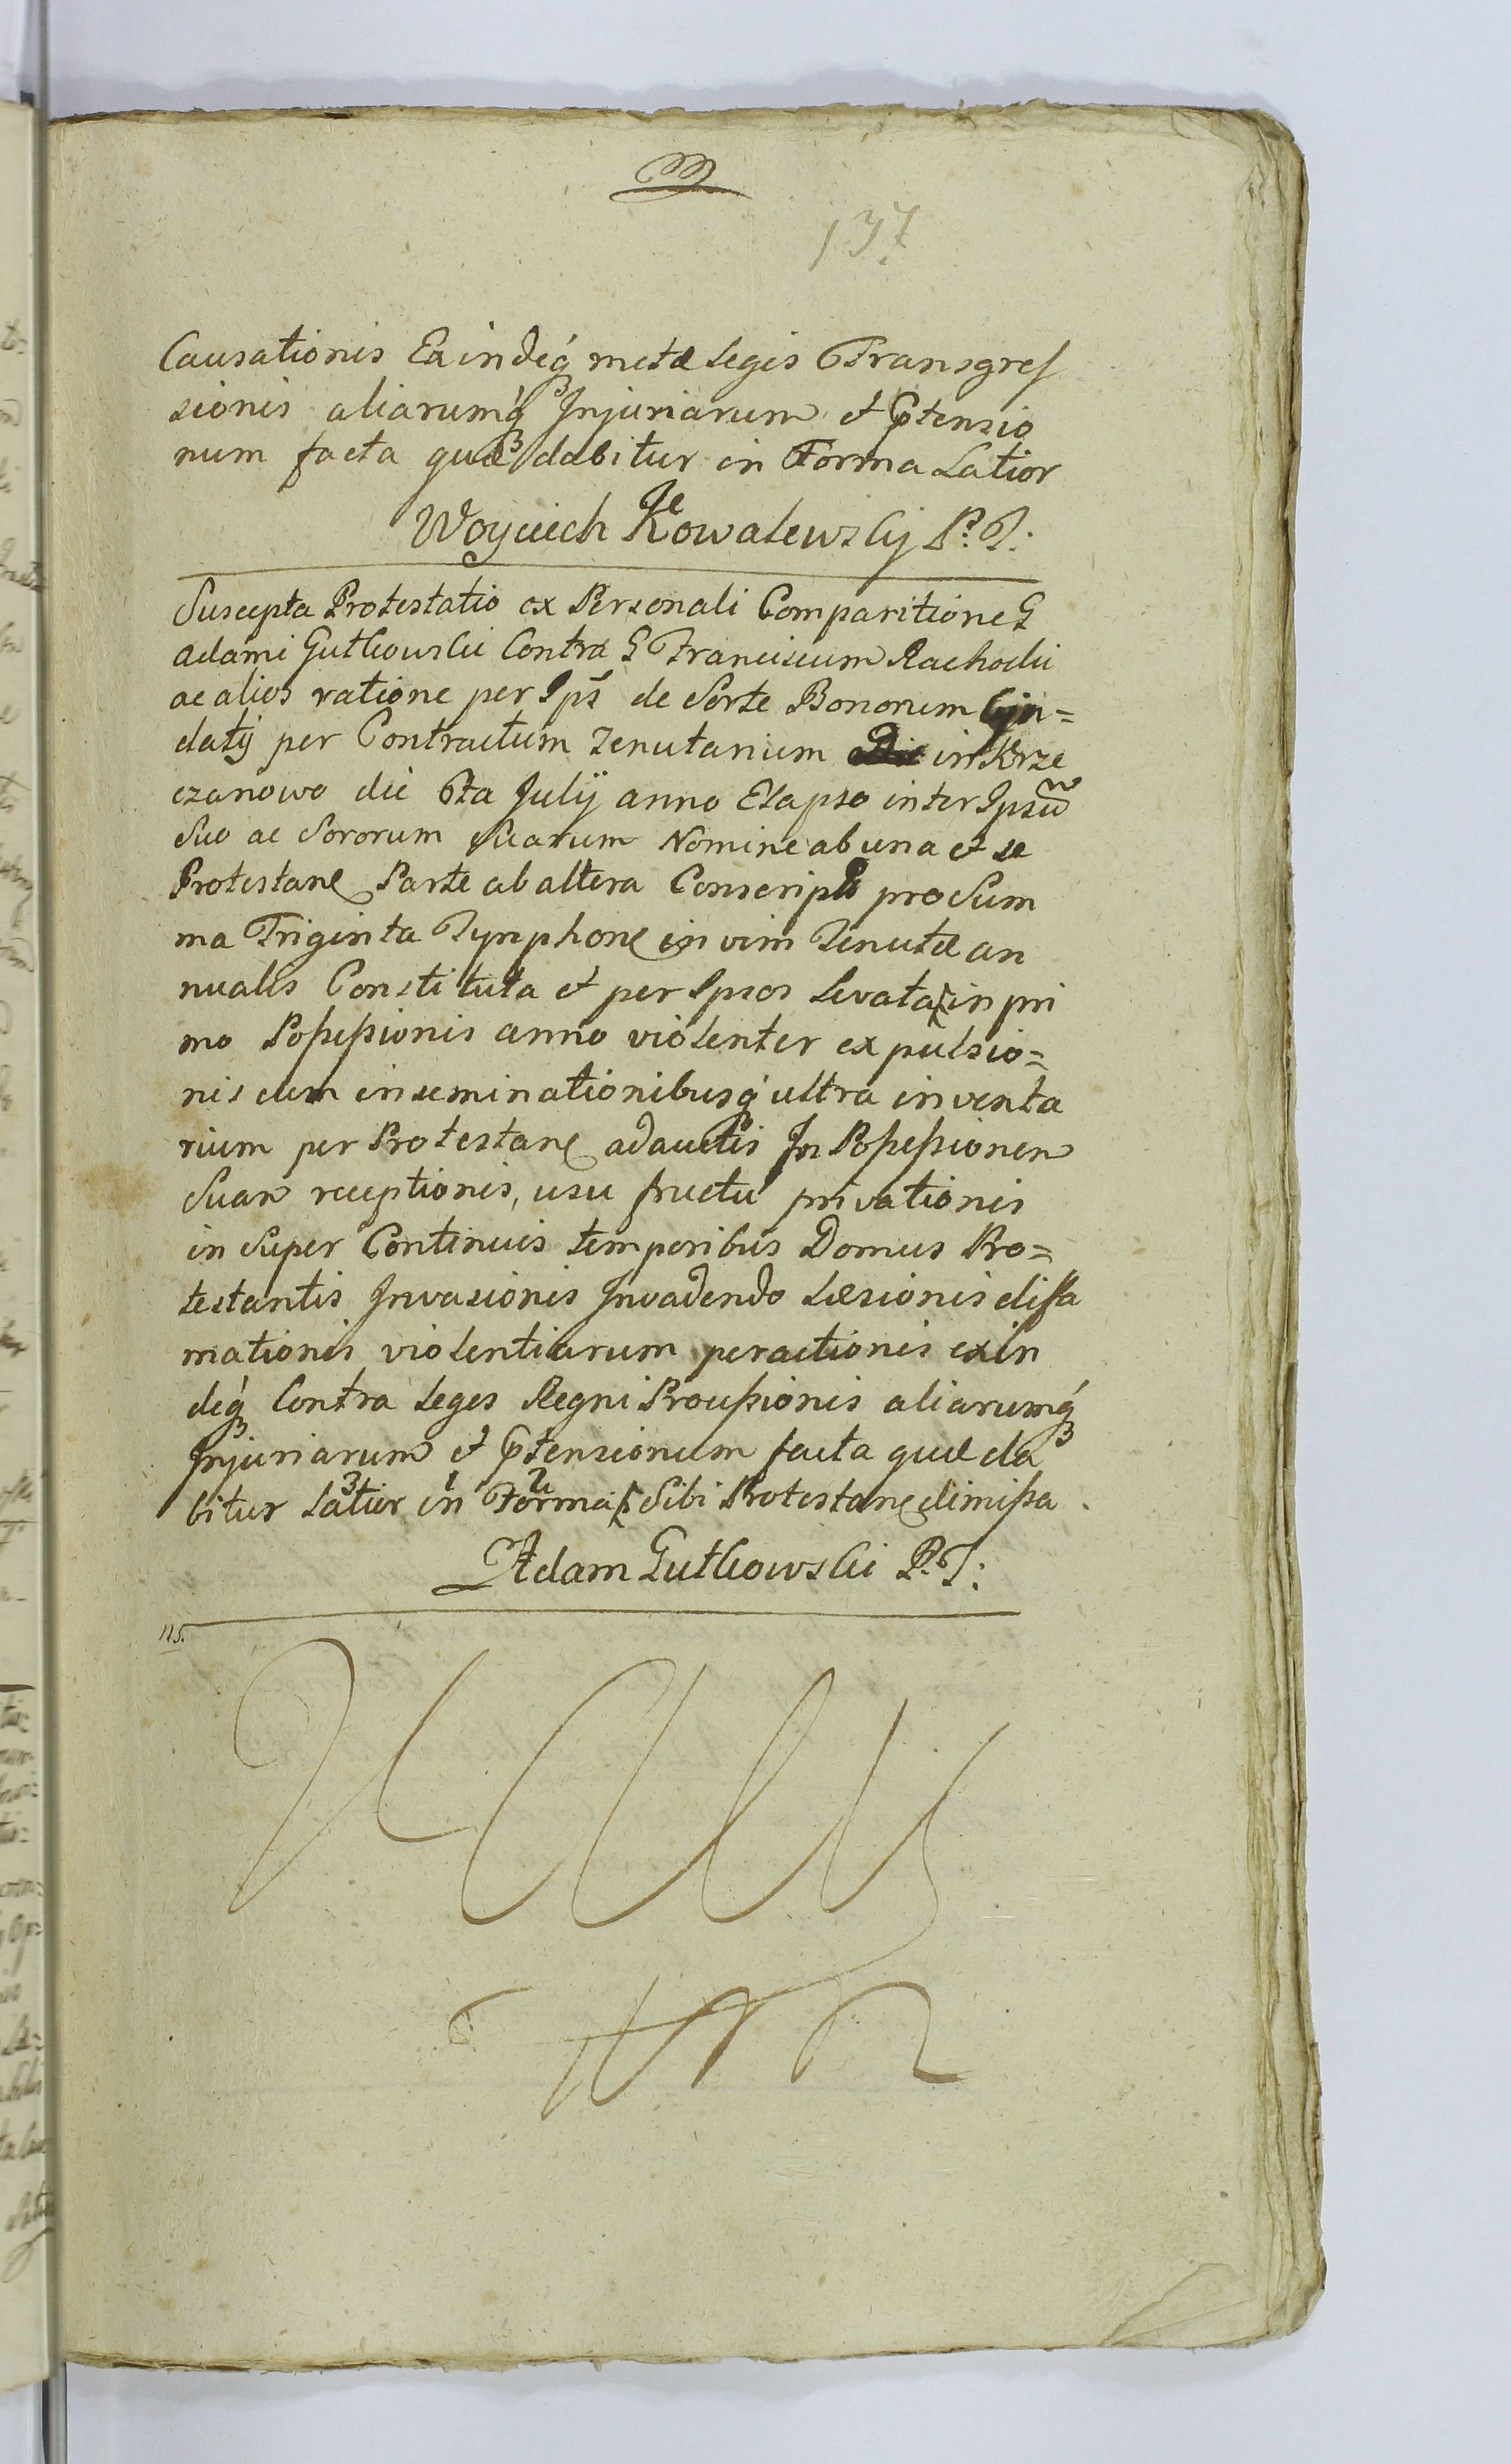 137
Causationis Exindeq́ metæ Legis Transgres
sionis aliarumq́ Injuriarum et Prtensio
num facta quæ dabitur in Forma Latior
Woyciech Kowalewsky P. T:
Suscepta Protestatio ex Personali Comparitione G
Adami Gutkowski Contra G Franciscum Rachocki
ac alios ratione per Ips̃ de Sorte Bonorum
per Contractum Tenutarium in Krze
czanowo die 6ta July anno Elapso inter Ipsũ
Suo ac Sororum Suarum Nomine ab una et se
Protestanẽ Parte ab altera Conscript pro Sum
ma Triginta Tymphonẽ in vim Tenutæ an
nualis Constituta et per Ipsos Levata in pri
mo Possessionis anno violenter expulsio=
nis cum inseminationibusq́ ultra inventa
rium per Protestanẽ adauctis In Possessionem
Suam receptionis, usu fructu privationis
in Super Continuis temporibus Domus Pro=
testantis Invasionis Invadendo Læsionis diffa
mationis violentiarum peractionis exin
deq́ Contra Leges Regni Proussionis aliarumq́
Injuriarum et Prtensionum facta quæ da
bitur Latior in Forma Sibi Protestanẽ dimissa
3 1 2
Adam Gutkowski P. T:
115.